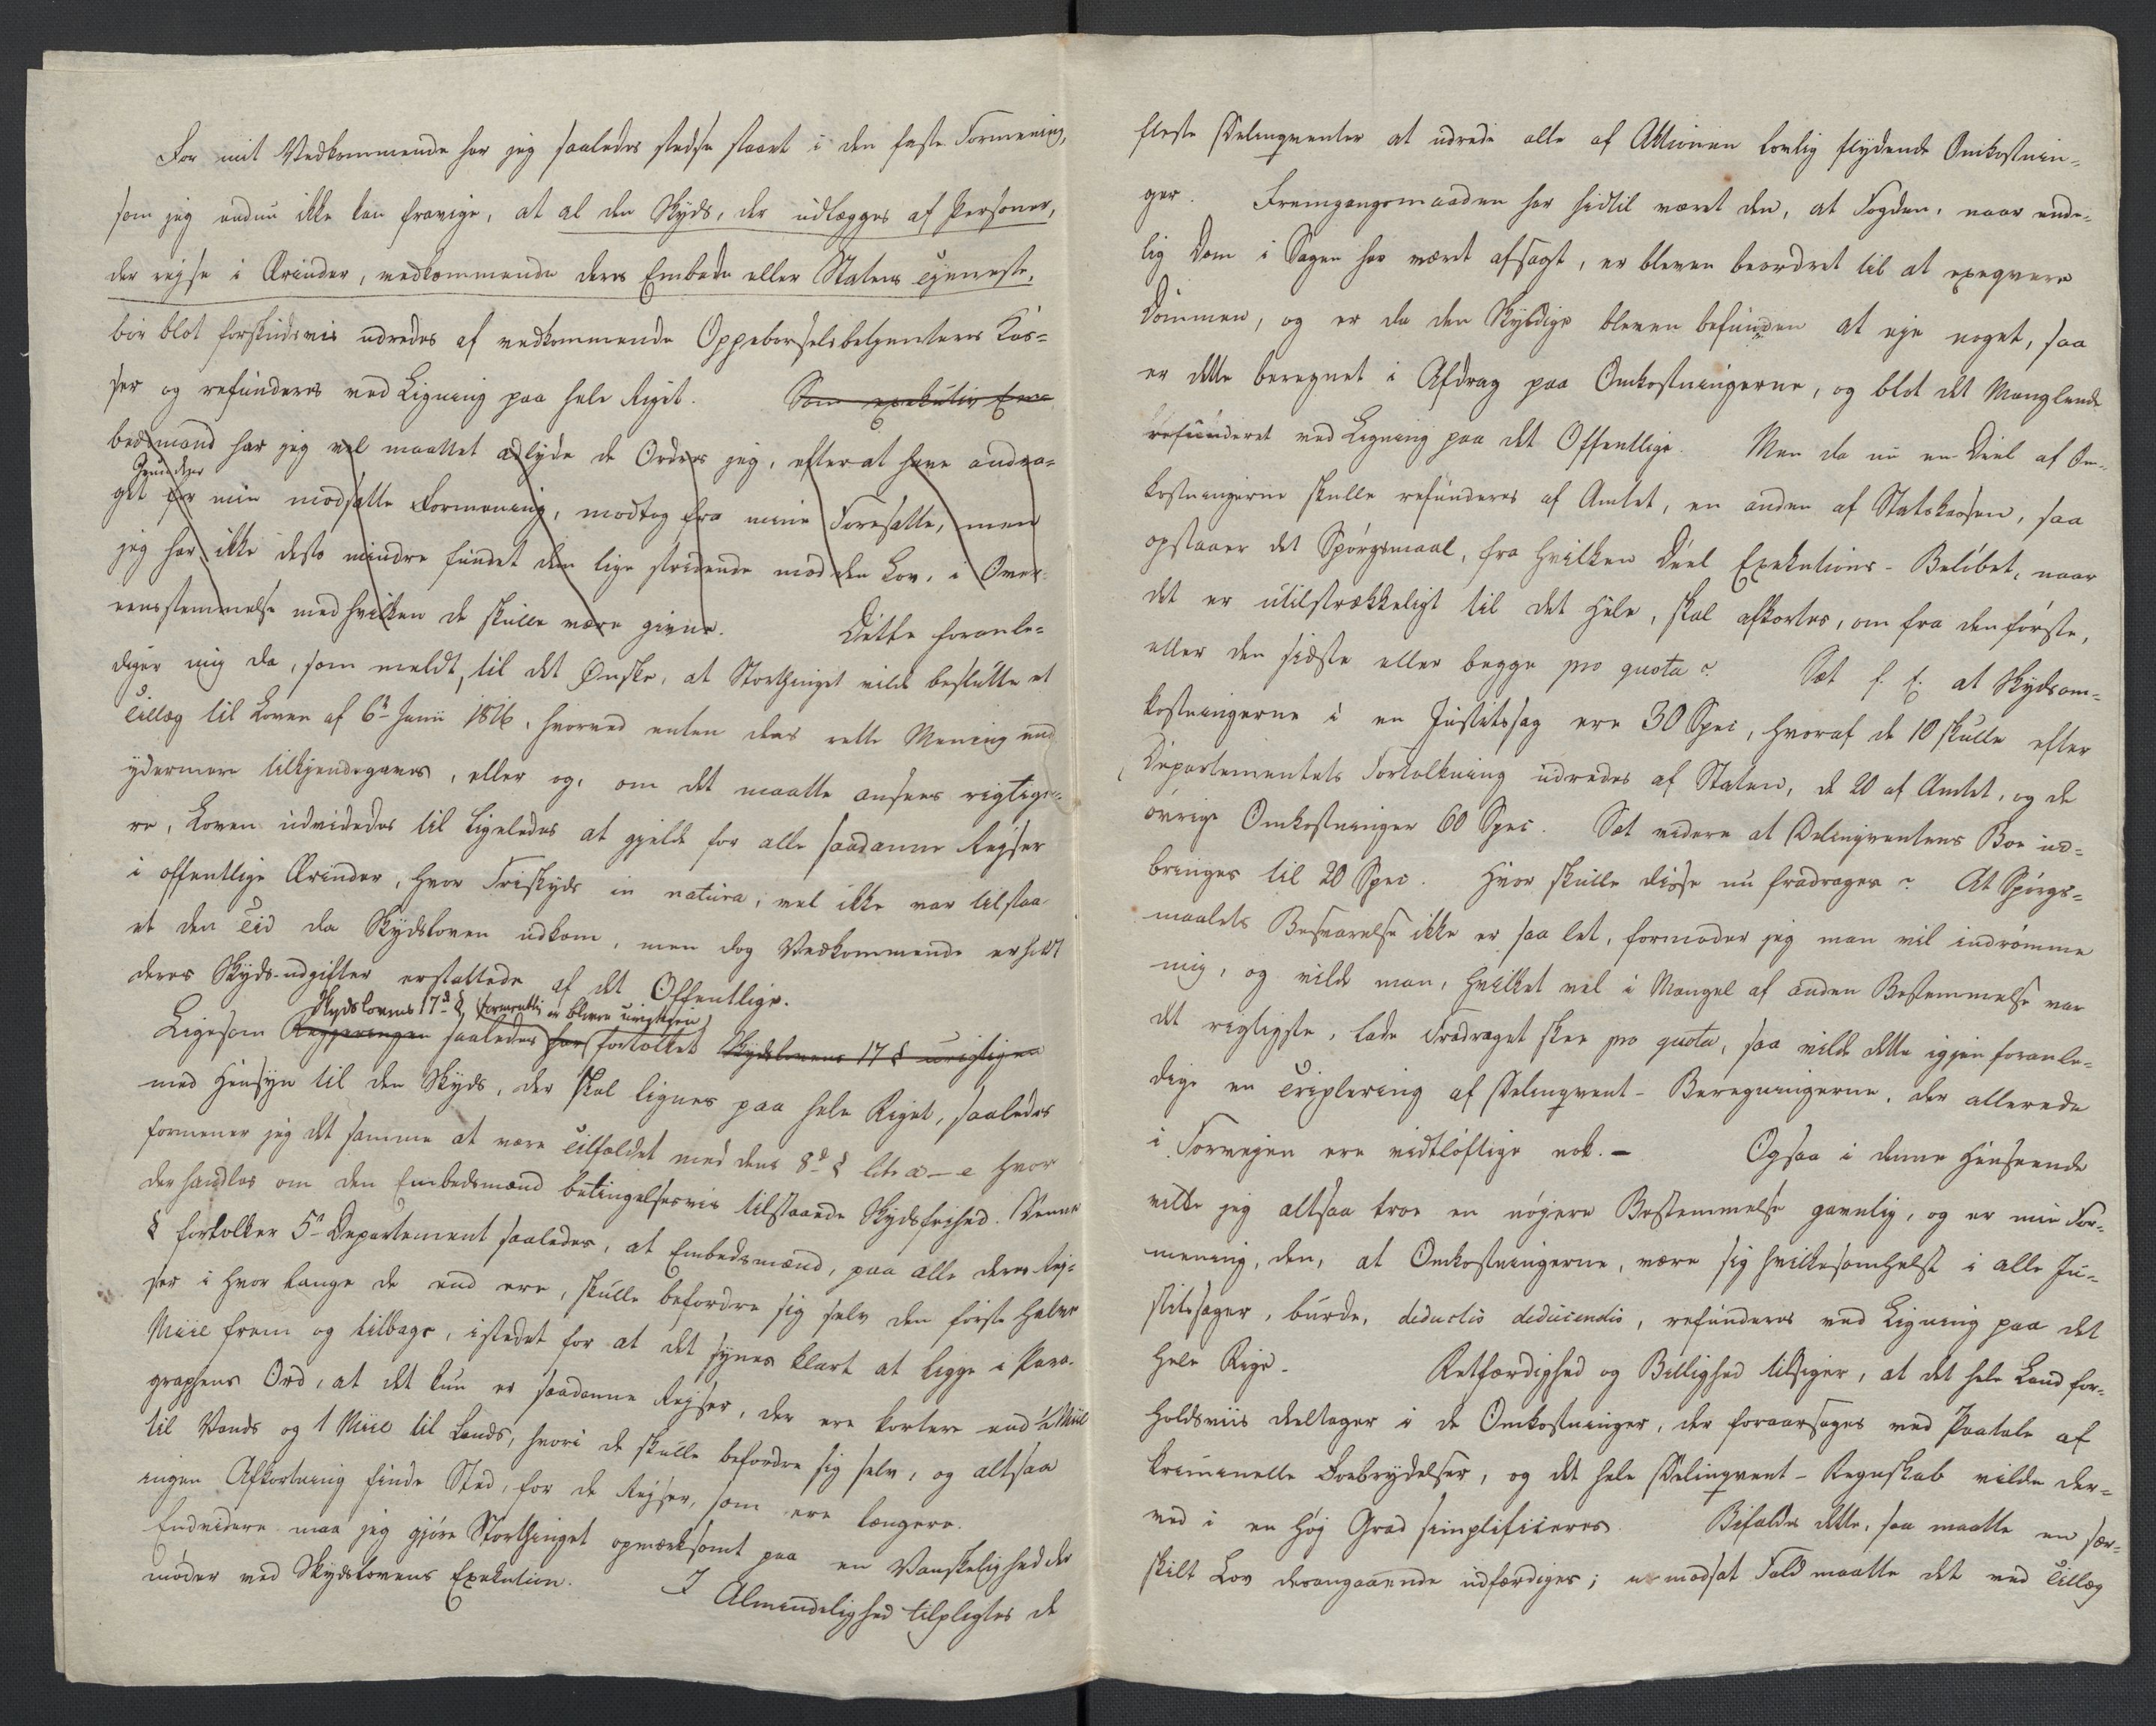 For mit Vedkommende har jeg saaledes stedse staaet i den faste Formening,
som jeg endnu ikke kan fravige, at al den Skyds, der udlægges af Personer,
der rejse i Ærinder, vedkommende deres Embede eller Statens Tjeneste,
bör blot forskudsvis udredes af vedkommende Oppebørselsbetjenters Kas-
ser og refunderes ved Ligning paa hele Riget. Som exekutiv Em-
bedsmand har jeg vel maattet adlyde de Ordres jeg, efterat have andra-
get for min modsatte Formening, modtog fra mine Foresatte, men
jeg har ikke desto mindre fundet dem lige stridende mod den Lov, i Over-
eensstemmelse med hvilken de skulle være givne. Dette foranle-
diger mig da, som meldt, til det Ønske, at Storthinget vilde beslutte et
Tillæg til Loven af 6te Junii 1816, hvorved enten dens rette Mening end
ydermere tilkjendegaves, eller og, om det maatte ansees rigtige-
re, Loven udvidedes til ligeledes at gjelde for alle saadanne Rejser
i offentlige Ærinder, hvor Friskyds in natura, vel ikke var tilstaa-
et den Tid da Skydsloven udkom, men dog Vedkommende erholdt
deres Skyds-udgifter erstattede af det Offentlige.
Skydslovens 17de §, formentlig er bleven urigtigen
Ligesom Regjeringen saaledes har fortolket Skydslovens 17 § urigtigen
med Hensyn til den Skyds, der skal lignes paa hele Riget, saaledes
formener jeg det samme at være Tilfældet med dens 8de § litr a–e hvor
der handles om den Embedsmænd betingelsesvis tilstaaede Skydsfrihed. Denne
§ fortolker 5te Departement saaledes, at Embedsmænd, paa alle deres Rej-
ser i hvor lange de end ere, skulle befordre sig selv den første halve
Miil frem og tilbage, istedet for at det synes klart at ligge i Para-
graphens Ord, at det kun er saadanne Rejser, der ere kortere end ½ Miil
til Vands og 1 Miil til Lands, hvori de skulle befordre sig selv, og altsaa
ingen Afkortning finde Sted, for de Rejser, som ere længere.
Endvidere maa jeg gjöre Storthinget opmærksomt paa en Vanskelighed der
möder ved Skydslovens Exekution. I Almindelighed tilpligtes de
fleste Delinqventer at udrede alle af Aktionen lovlig flydende Omkostnin-
ger. Fremgangsmaaden har hidtil været den, at Fogden, naar ende-
lig Dom i Sagen har været afsagt, er bleven beordret til at exeqvere
Dommen, og er da den Skyldige bleven befunden at eje noget, saa
er dette beregnet i Afdrag paa Omkostningerne, og blot det Manglende
refunderet ved Ligning paa det Offentlige. Men da nu en Deel af Om-
kostningerne skulle refunderes af Amtet, en anden af Statskassen, saa
opstaaer det Spörgsmaal, fra hvilken Deel Exekutions-Belöbet, naar
det er utilstrækkeligt til det Hele, skal afkortes, om fra den förste,
eller den sidste eller begge pro quota? Sæt f. E. at Skydsom-
kostningerne i en Justitssag ere 30 Spec, hvoraf de 10 skulle efter
Departementets Fortolkning udredes af Staten, de 20 af Amtet, og de
övrige Omkostninger 60 Spec. Sæt videre at Delinqventens Boe ud-
bringes til 20 Spec. Hvor skulle disse nu fradrages? At Spörgs-
maalets Besvarelse ikke er saa let, formoder jeg man vil indrömme
mig, og vilde man, hvilket vel i Mangel af anden Bestemmelse var
det rigtigste, lade Fradraget skee pro quota, saa vilde dette igjen foranle-
dige en Triplering af Delinqvent-Beregningerne, der allerede
i Forvejen ere vidtlöftige nok.– Ogsaa i denne Henseende
vilde jeg altsaa troe en nöjere Bestemmelse gavnlig, og er min For-
mening, den, at Omkostningerne, være sig hvilkesomhelst i alle Ju-
stitssager, burde, deductis deducendis, refunderes ved Ligning paa det
hele Rige. Retfærdighed og Billighed tilsiger, at det hele Land for-
holdsviis deeltager i de Omkostninger, der foraarsages ved Paatale af
kriminelle Forbrydelser, og det hele Delinqvent-Regnskab vilde der-
ved i en höj Grad simplificeres. Bifaldes dette, saa maatte en sær-
skilt Lov derangaaende udfærdiges; i modsat Fald maatte det ved Tillæg